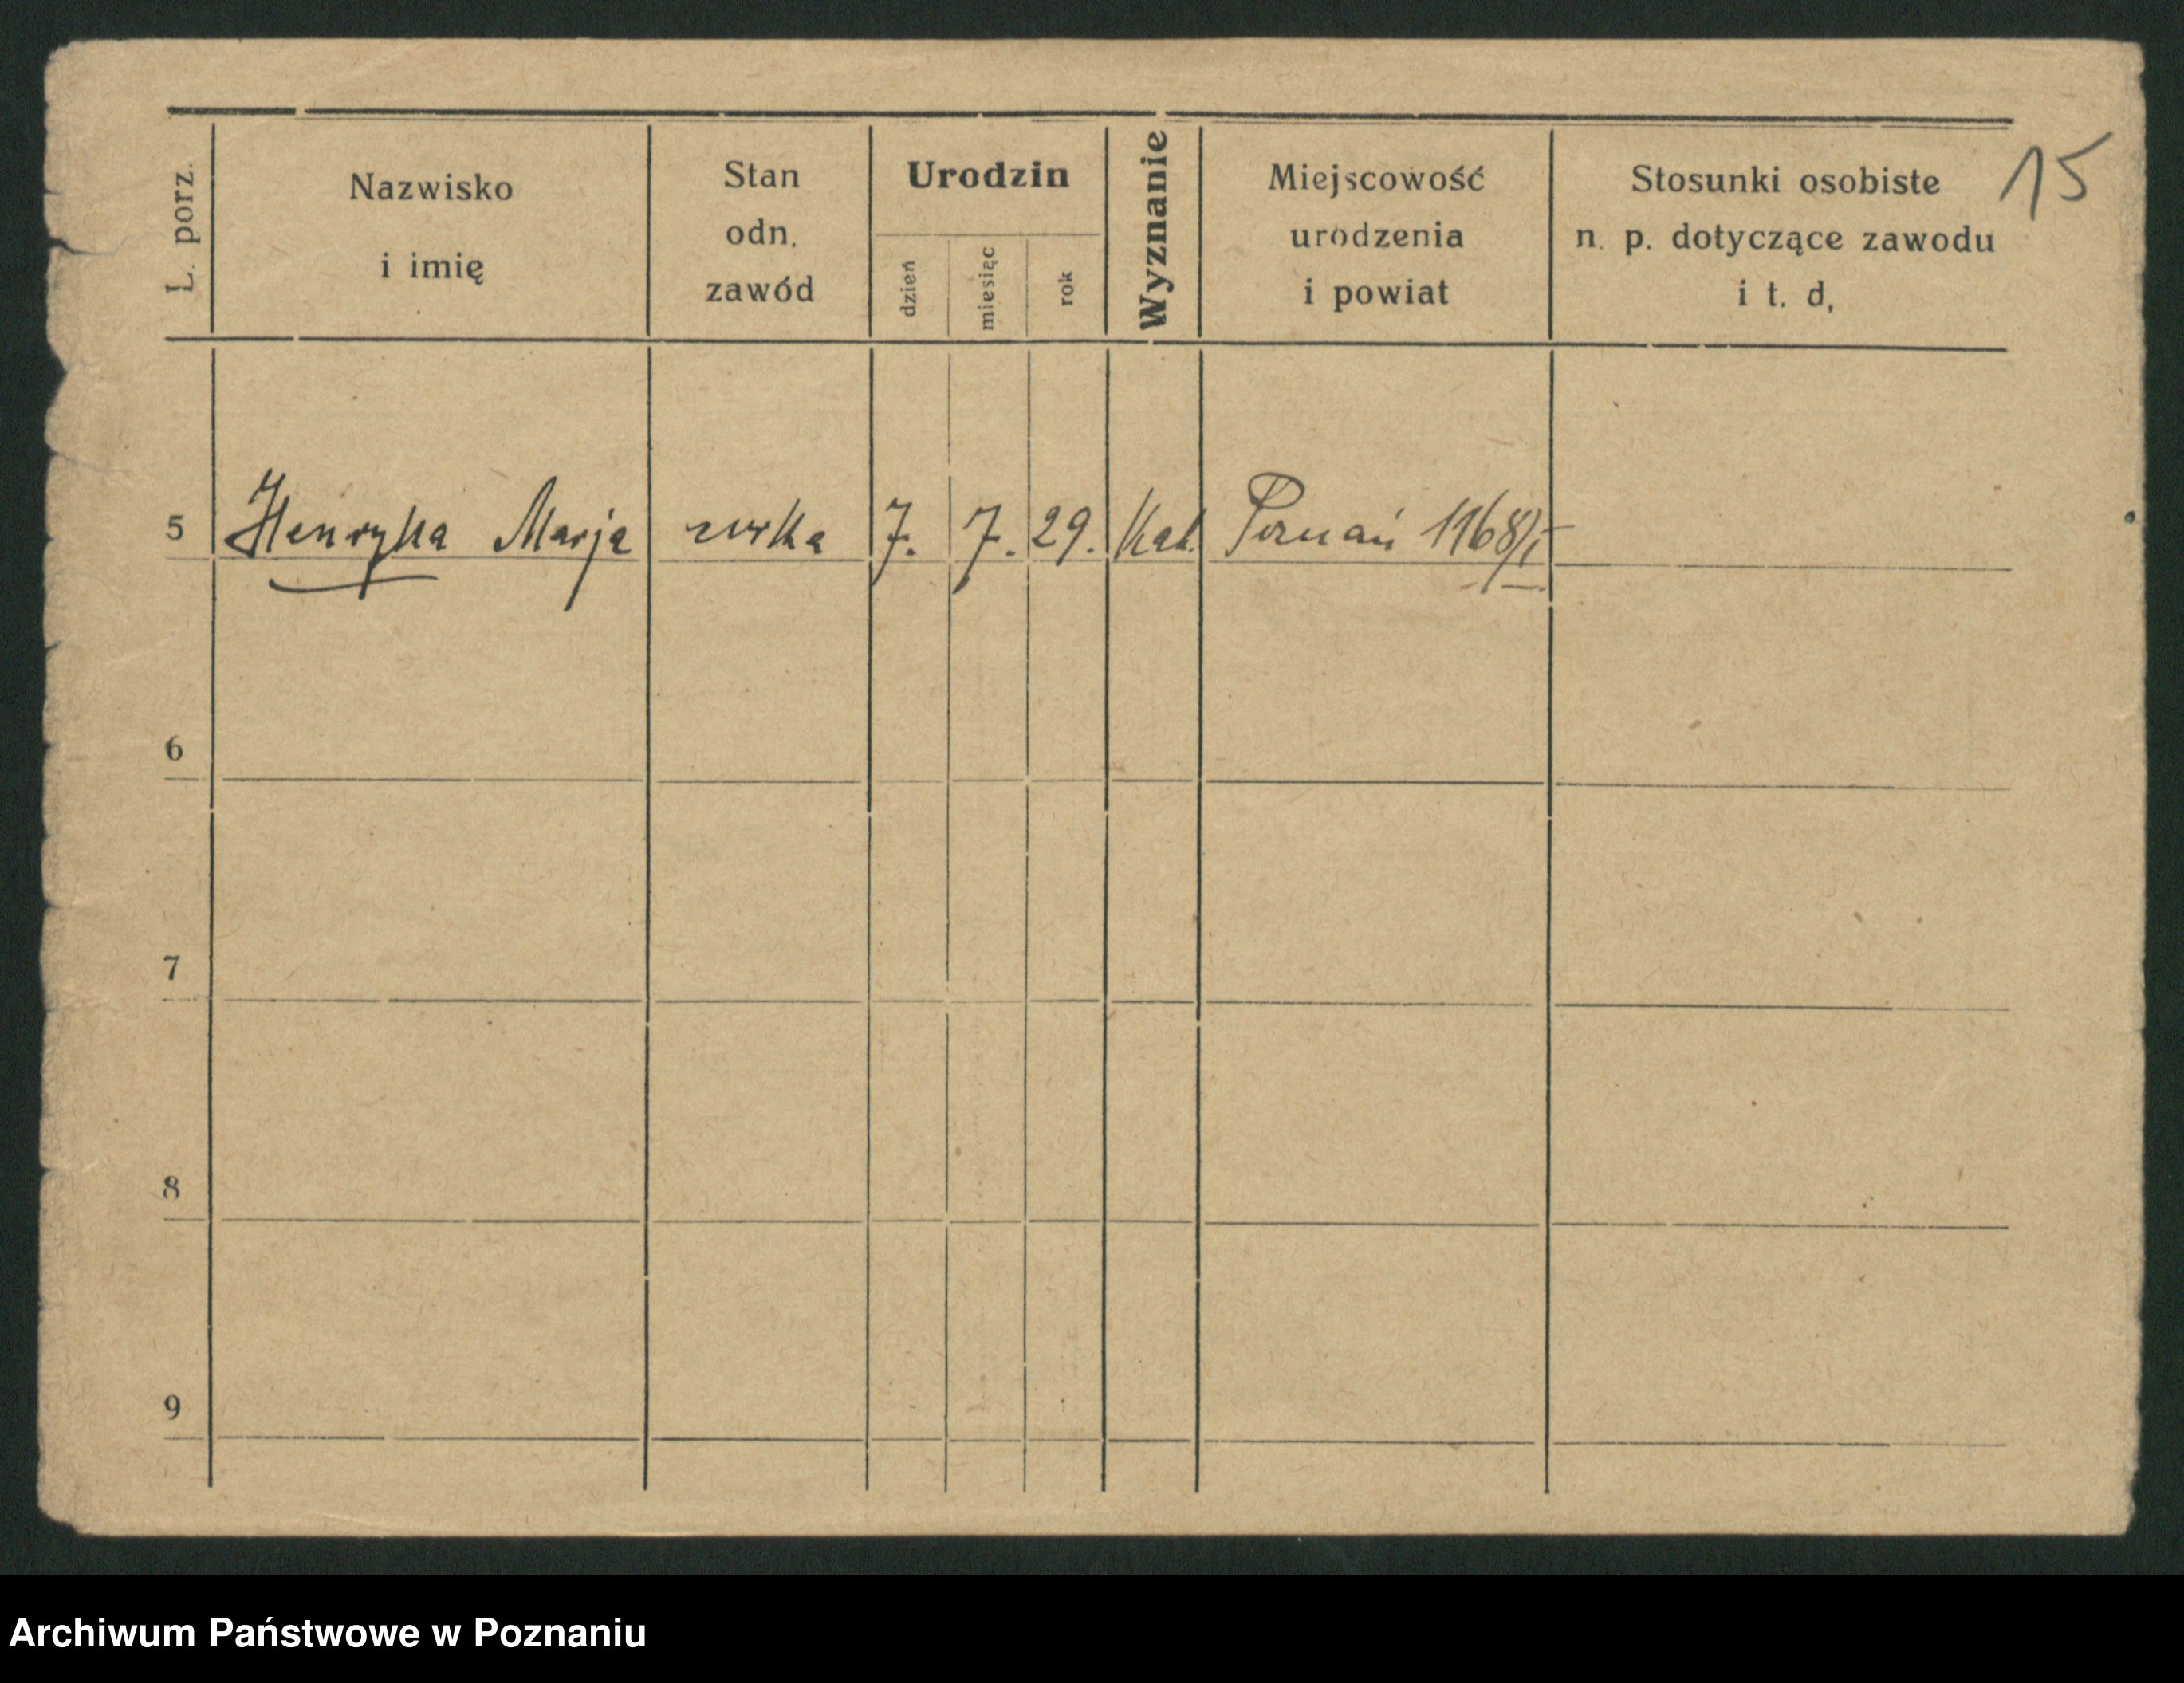 15
L. porz.
Nazwisko
i imię
Stan
odn.
zawód
Urodzin
dzień
miesiąc
rok
Wyznanie
Miejscowość
urodzenia
i powiat
Stosunki osobiste
n. p. dotyczące zawodu
i t. d.
5 Henryka Marja 7. 7. 29. Kat. Poznań 1168/I
6
7
8
9
Archiwum Państwowe w Poznaniu